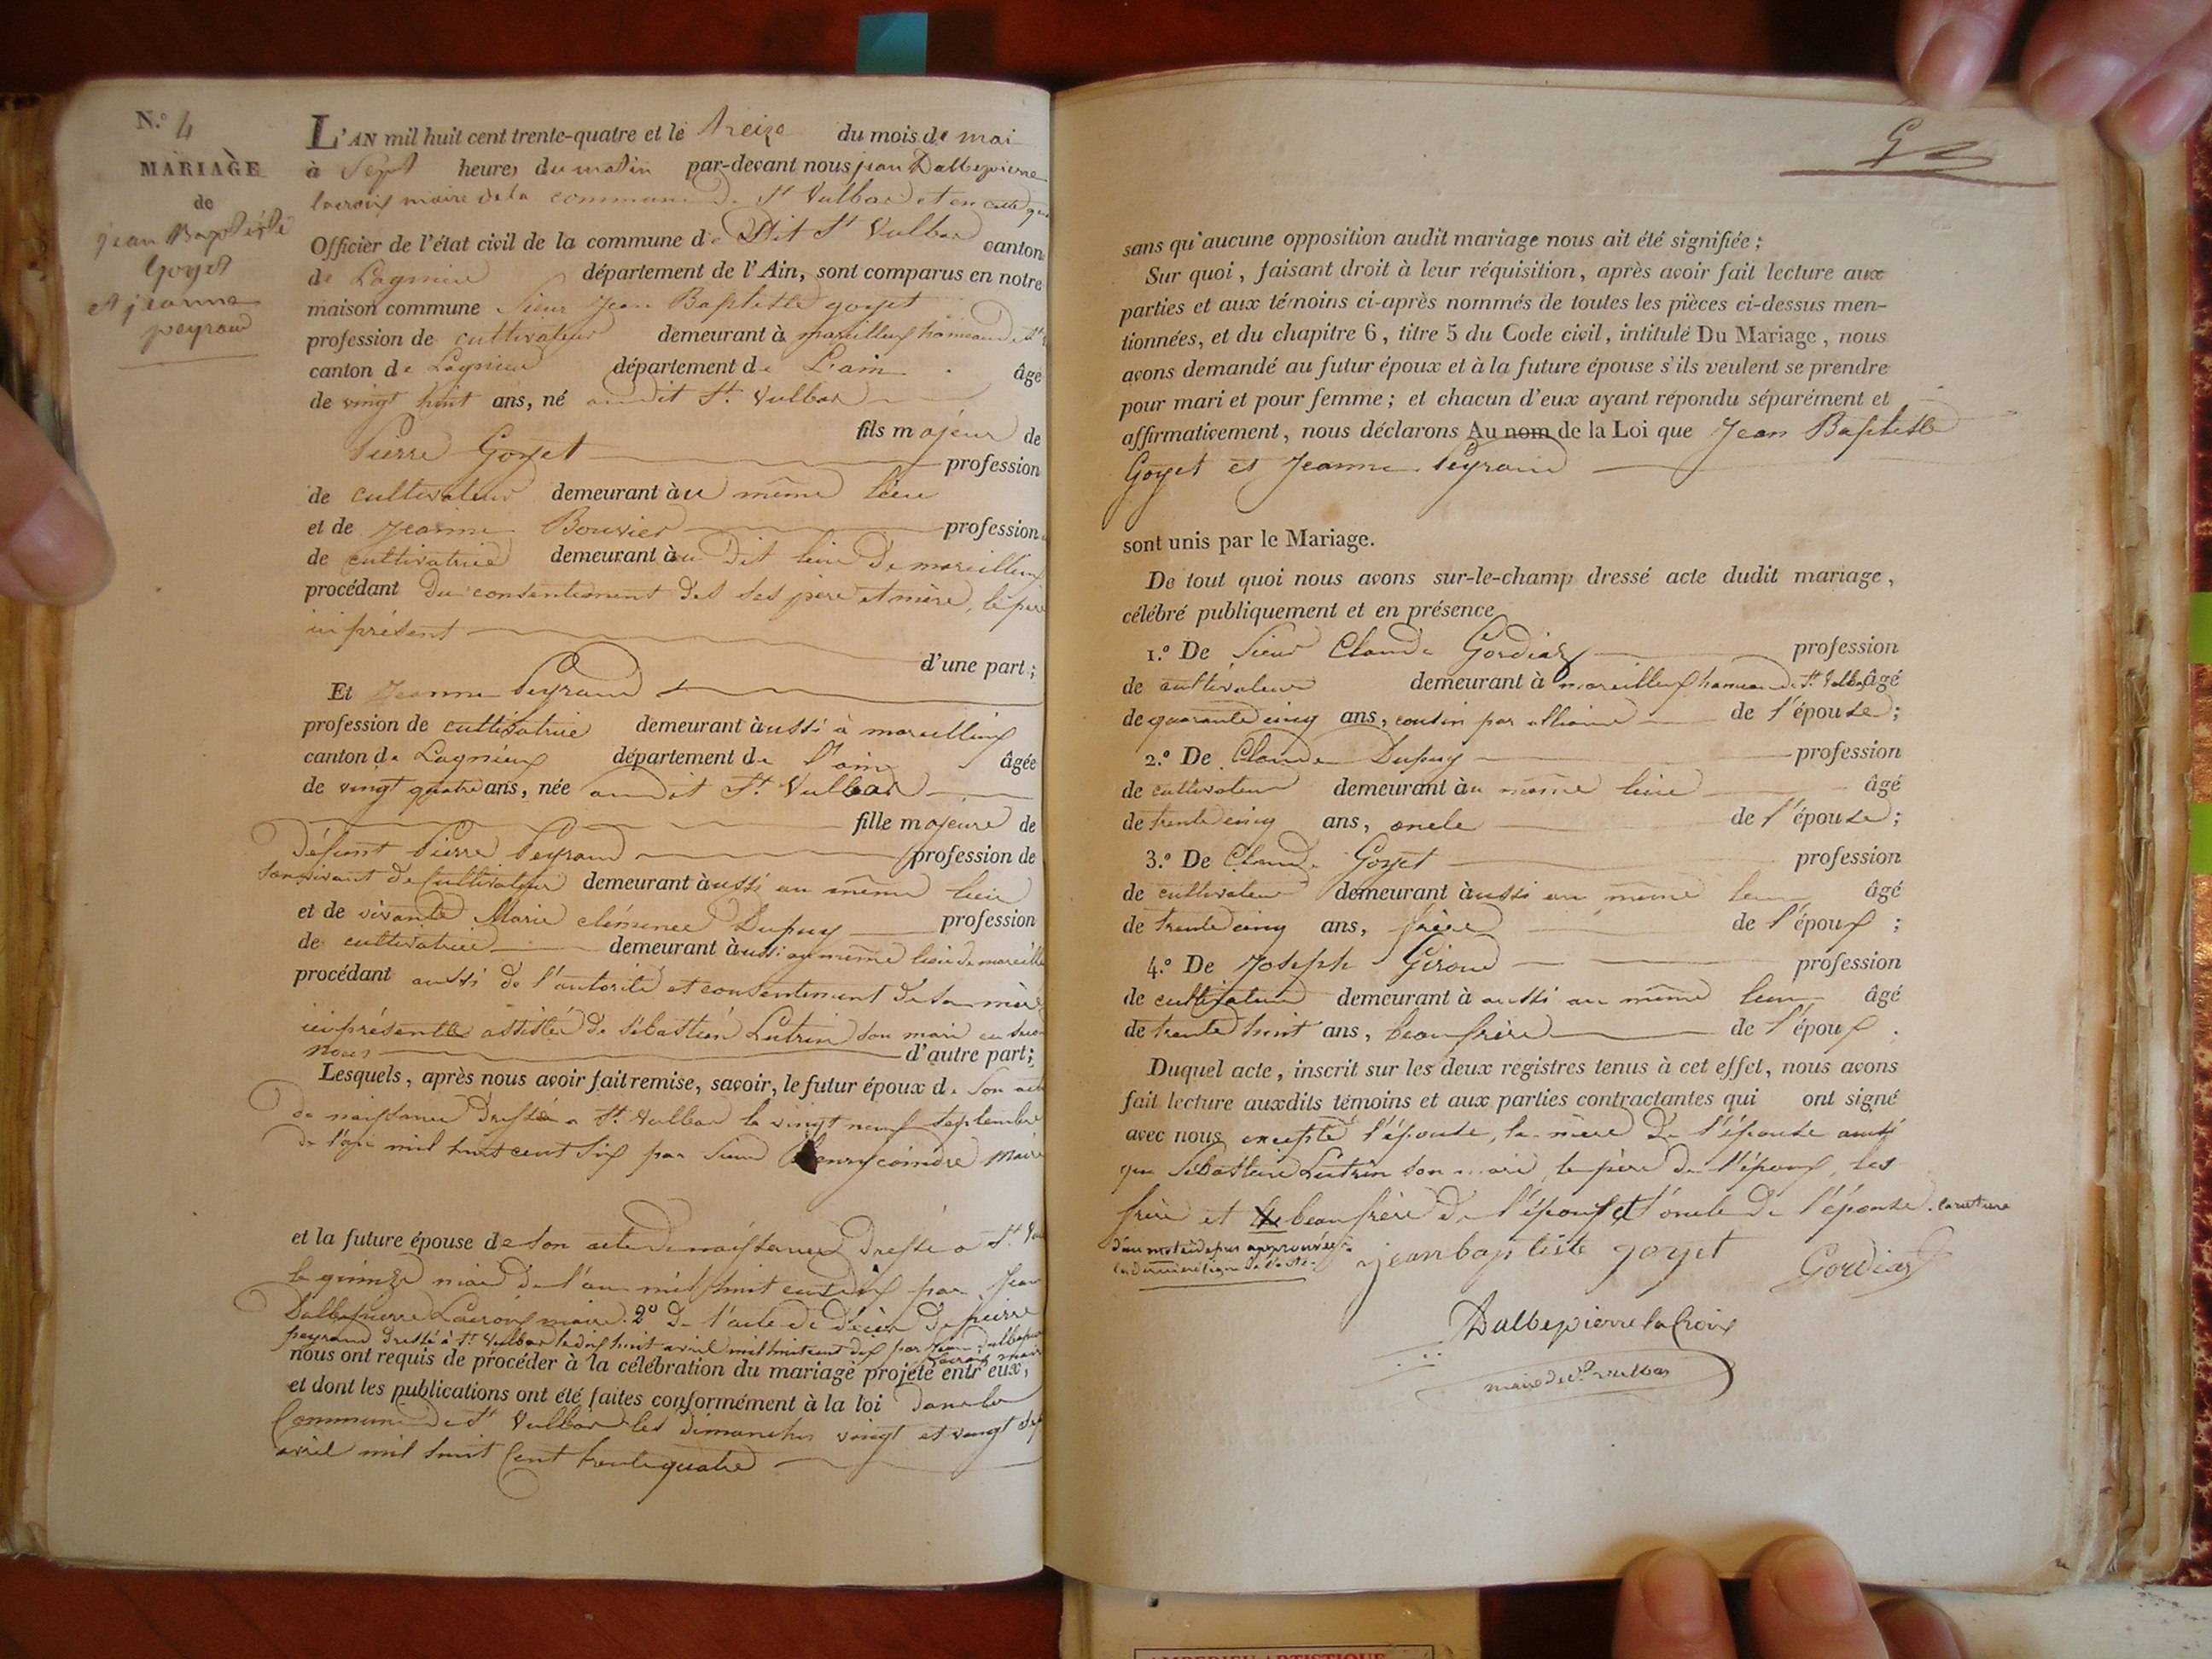 N.º 4
MARIAGE
de
jean Baptiste
Goyet
et jeanne
peyraud
L'AN mil huit cent trente-quatre et le treize du mois de mai
à Sept heures du matin par-devant nous jean Dalbepierre
lacroix maire de la commune de St Vulbas et en cette
Officier de l'état civil de la commune de Dit St Vulbas canton
de Lagnieu département de l'Ain, sont comparus en notre
maison commune Sieur Jean Baptiste goyet
profession de cultivateur demeurant à marcilleux hameau de St
canton de Lagnieu département de L'ain âgé
de vingt huit ans, né audit St. Vulbas
fils majeur de
Pierre Goyet profession
de cultivateur demeurant àu même lieu
et de Jeanne Bouvier profession
de cultivatrice demeurant àu Dit lieu De marcilleux
procédant Du consentement des ses père et mère, le père
ici présent
d'une part;
Et Jeanne Peyraud
profession de cultivatrice demeurant àussi à marcilleux
canton de Lagnieux département de l'ain âgée
de vingt quatre ans, née audit St Vulbas
fille majeure de
Défunt Pierre Peyraud profession de
Son vivant de Cultivateur demeurant àussi au même lieu
et de vivante Marie clémence Dupuy profession
de cultivatrice demeurant àussi au même lieu de marcille
procédant aussi de l'autorité et consentement de sa mère
ici présente assistée De Sébastien Lutrin son mari en
noces d'autre part;
Lesquels, après nous avoir fait remise, savoir, le futur époux de Son acte
de naissance Dressé a St. Vulbas le vingt neuf septembre
de l'an mil huit cent six par Sieur henry coindre Maire
et la future épouse de Son acte De naissance Dressé a St. Vul
le quinze mai de l'an mil huit cent dix par Jean
Dalbepierre Lacroix maire. 2º De l'acte de Décès De pierre
peyraud Dressé à St. Vulbas le dix huit avril mil huit cent dix par Jean Dalbepierre
Lacroix maire
nous ont requis de procéder à la célébration du mariage projeté entr'eux,
et dont les publications ont été faites conformément à la loi Dans la
Commune de St Vulbas les dimanches vingt et vingt sept
avril mil huit Cent trente quatre
sans qu'aucune opposition audit mariage nous ait été signifiée;
Sur quoi, faisant droit à leur réquisition, après avoir fait lecture aux
parties et aux témoins ci-après nommés de toutes les pièces ci-dessus men-
tionnées, et du chapitre 6, titre 5 du Code civil, intitulé Du Mariage, nous
avons demandé au futur époux et à la future épouse s'ils veulent se prendre
pour mari et pour femme; et chacun d'eux ayant répondu séparément et
affirmativement, nous déclarons Au nom de la Loi que Jean Baptiste
Goyet et Jeanne Peyraud
sont unis par le Mariage.
De tout quoi nous avons sur-le-champ dressé acte dudit mariage,
célébré publiquement et en présence
1.º De Sieur Claude Gordiat profession
de cultivateur demeurant à marcilleux hameau de St. Vulbas âgé
de quarante cinq ans, cousin par alliance de l'épouse;
2.º De Claude Dupuy profession
de cultivateur demeurant àu même lieu âgé
de trente cinq ans, oncle de l'épouse;
3.º De Claude Goyet profession
de cultivateur demeurant àussi au même lieu âgé
de trente cinq ans, frère de l'époux;
4.º De Joseph Giroud profession
de cultivateur demeurant à aussi au même lieu âgé
de trente huit ans, beaufrère de l'époux.
Duquel acte, inscrit sur les deux registres tenus à cet effet, nous avons
fait lecture auxdits témoins et aux parties contractantes qui ont signé
avec nous excepté l'épouse, la mère De l'épouse ainsi
que Sébastien Lutrin son mari, le père de l'époux, les
frère et le beaufrère De l'époux et l'oncle De l'épouse. la rature
d'un mot cidessus approuvée à
la dernière ligne de l'acte.
jean baptiste goyet Gordiat
Dalbepierre la Croix
maire de St. vulbas